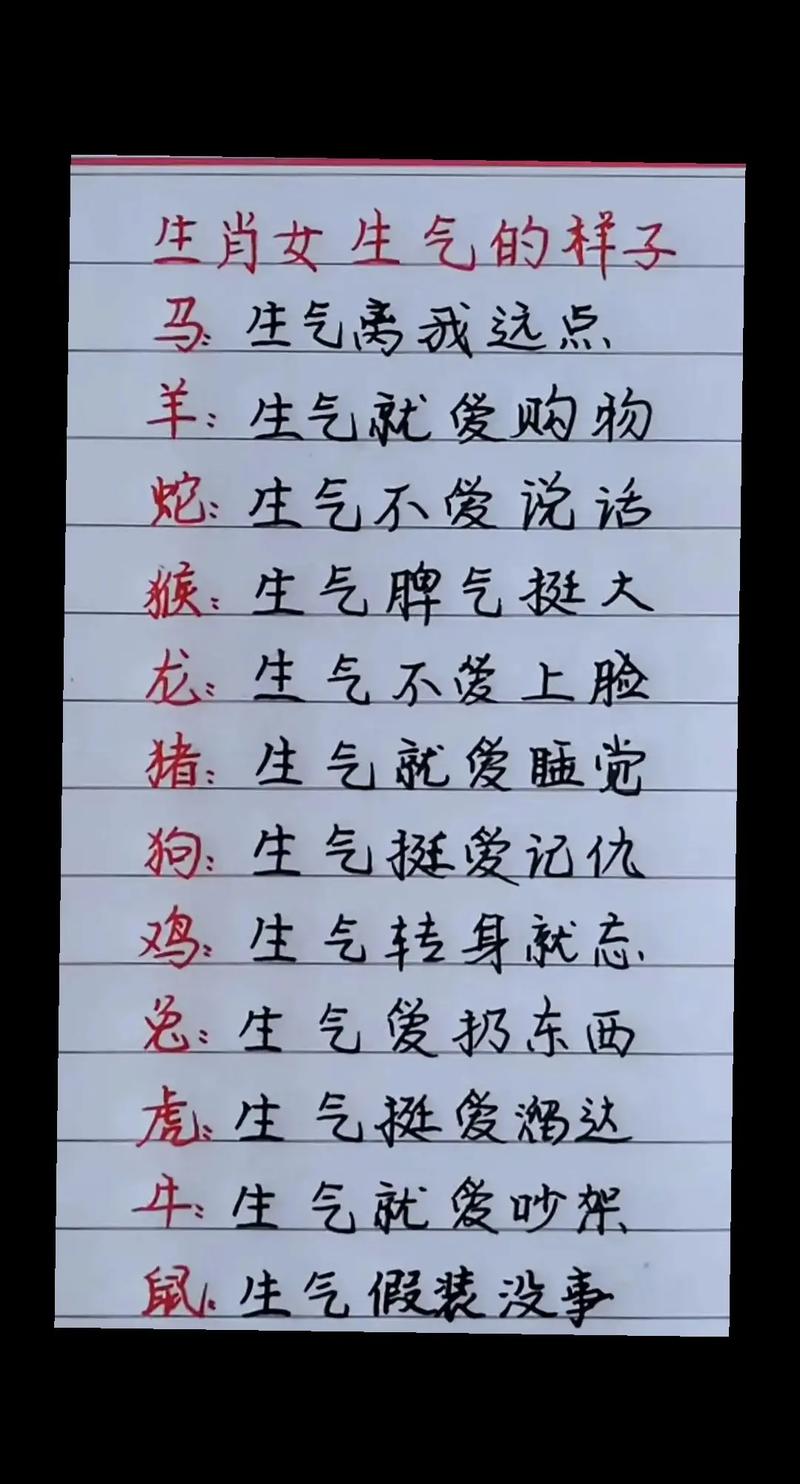 生肖女生气的样子
马:生气离我远点
羊:生气就爱购物
蛇:生气不爱说话
猴:生气脾气挺大
龙:生气不爱上脸
猪:生气就爱睡觉
狗:生气挺爱记仇
鸡:生气转身就忘
兔:生气爱扔东西
虎:生气挺爱溜达
牛:生气就爱吵架
鼠:生气假装没事